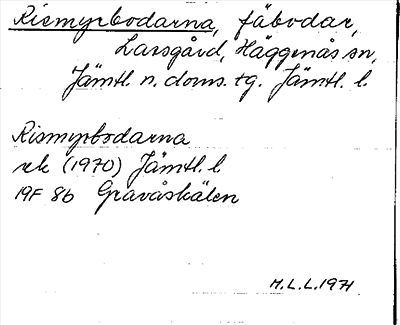 Rismyrbodarna, fäbodar,
Larsgård, Häggenås sn,
Jämtl. n. doms. tg. Jämtl. l.
Rismyrbodarna
ek (1970) Jämtl. l
19F 8b Gravåskälen
M.L.L. 1971